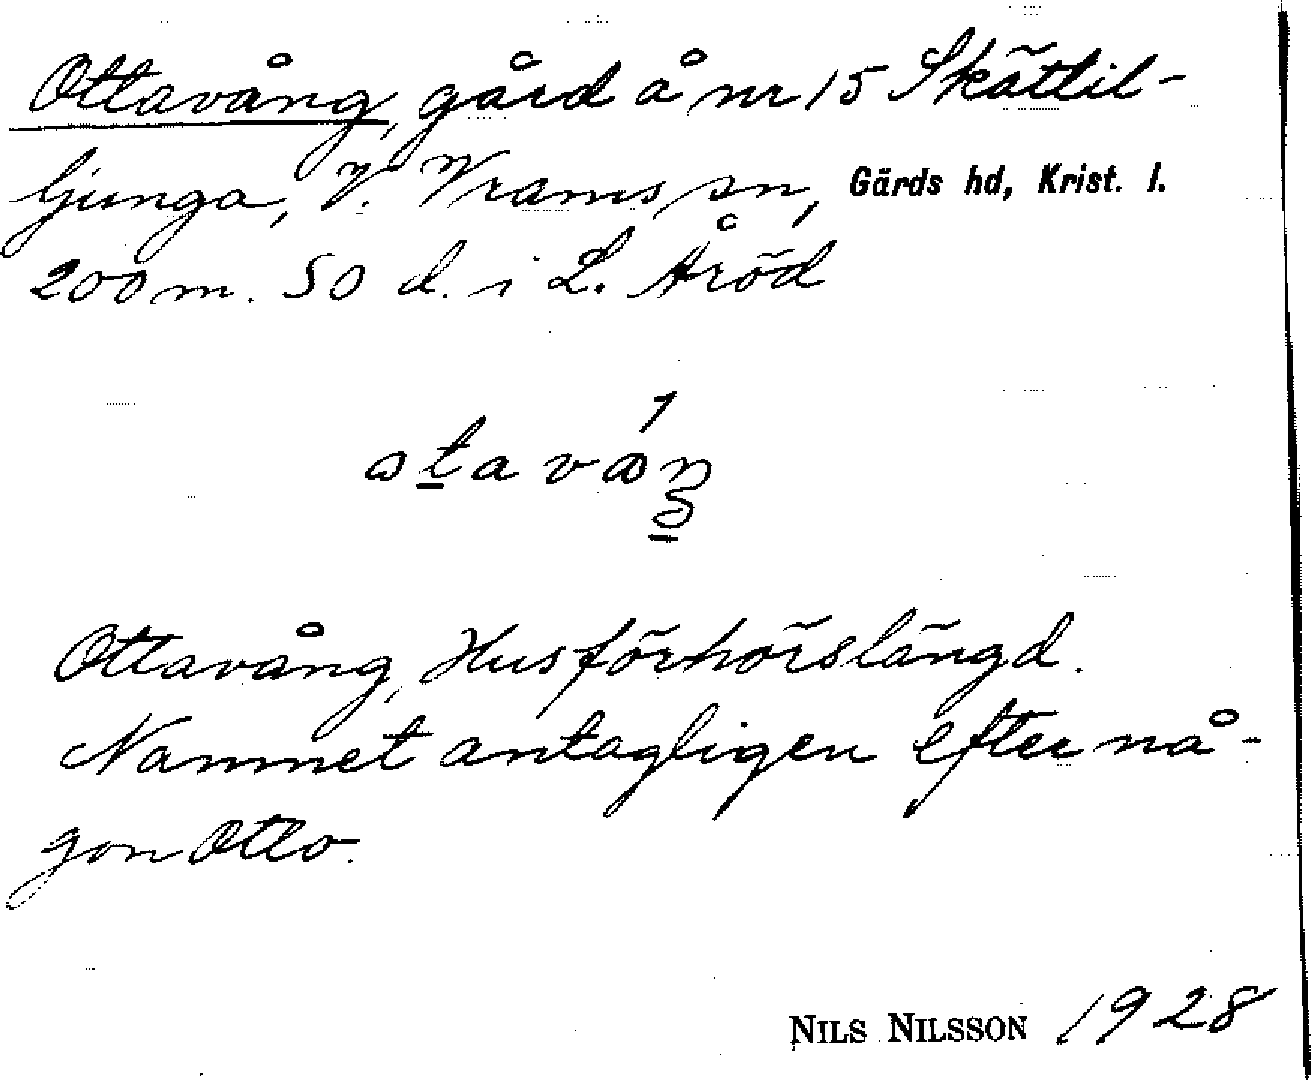 Ottavång, gård å nr 15 Skättil-
ljunga, V. Vrams sn, Gärds hd, Krist. l.
200 m. SO d. i L. Åröd
Ottavång, Husförhörslängd.
Namnet antagligen efter nå-
gon Otto.
NILS NILSSON 1928